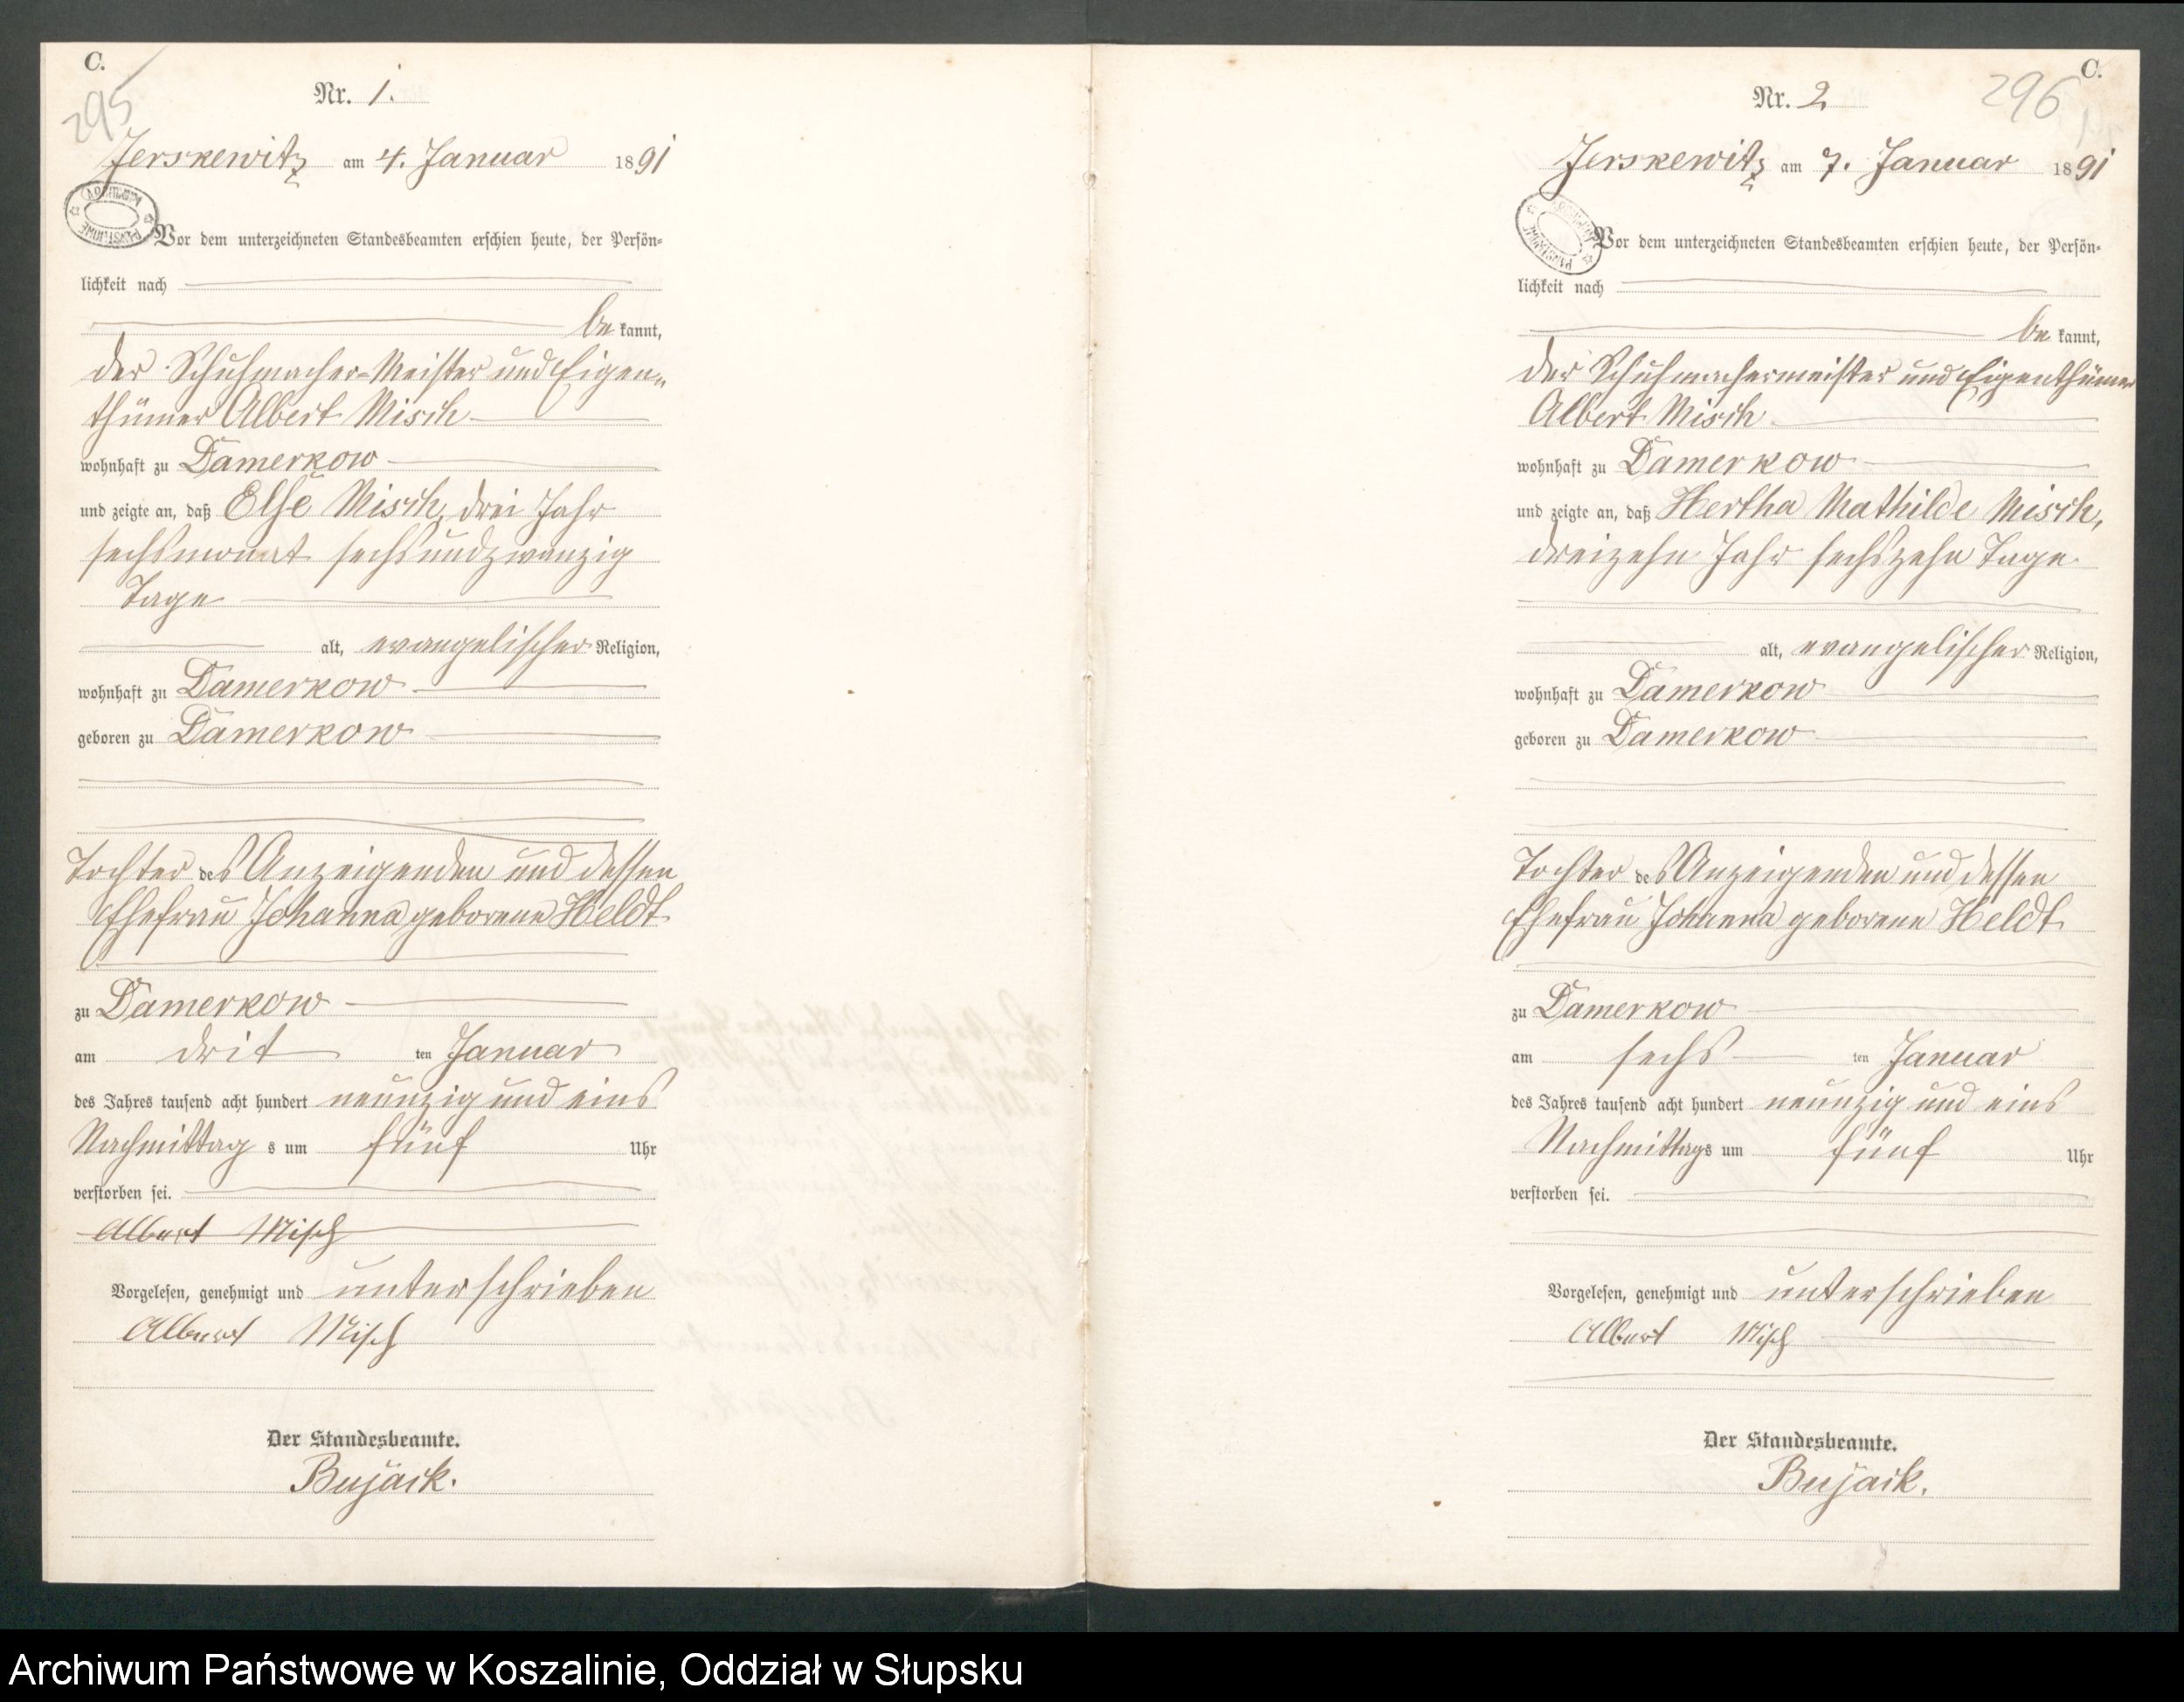 C.
295
Nr. 1.
Jerskewitz am 4. Januar 1891
Vor dem unterzeichneten Standesbeamten erschien heute, der Persön-
lichkeit nach
be kannt,
der Schuhmacher-Meister und Eigen-
thümer Albert Misch
wohnhaft zu Damerkow
und zeigte an, daß Else Misch, drei Jahr
sechsmonat sechsundzwanzig
Tage
alt, evangelischer Religion,
wohnhaft zu Damerkow
geboren zu Damerkow
Tochter des Anzeigenden und dessen
Ehefrau Johanna geborene Heldt
zu Damerkow
am drit ten Januar
des Jahres tausend acht hundert neunzig und eins
Nachmittag s um fünf Uhr
verstorben sei.
Albert Misch
Vorgelesen, genehmigt und unterschrieben
Albert Misch
Der Standesbeamte.
Bujack.
C.
296
Nr. 2
Jerskewitz am 7. Januar 1891
Vor dem unterzeichneten Standesbeamten erschien heute, der Persön-
lichkeit nach
be kannt,
der Schuhmachermeister und Eigenthümer
Albert Misch
wohnhaft zu Damerkow
und zeigte an, daß Hertha Mathilde Misch,
dreizehn Jahr sechszehn Tage
alt, evangelischer Religion,
wohnhaft zu Damerkow
geboren zu Damerkow
Tochter des Anzeigenden und dessen
Ehefrau Johanna geborene Heldt
zu Damerkow
am sechs ten Januar
des Jahres tausend acht hundert neunzig und eins
Nachmittags um fünf Uhr
verstorben sei.
Vorgelesen, genehmigt und unterschrieben
Albert Misch
Der Standesbeamte.
Bujack.
Archiwum Państwowe w Koszalinie, Oddział w Słupsku